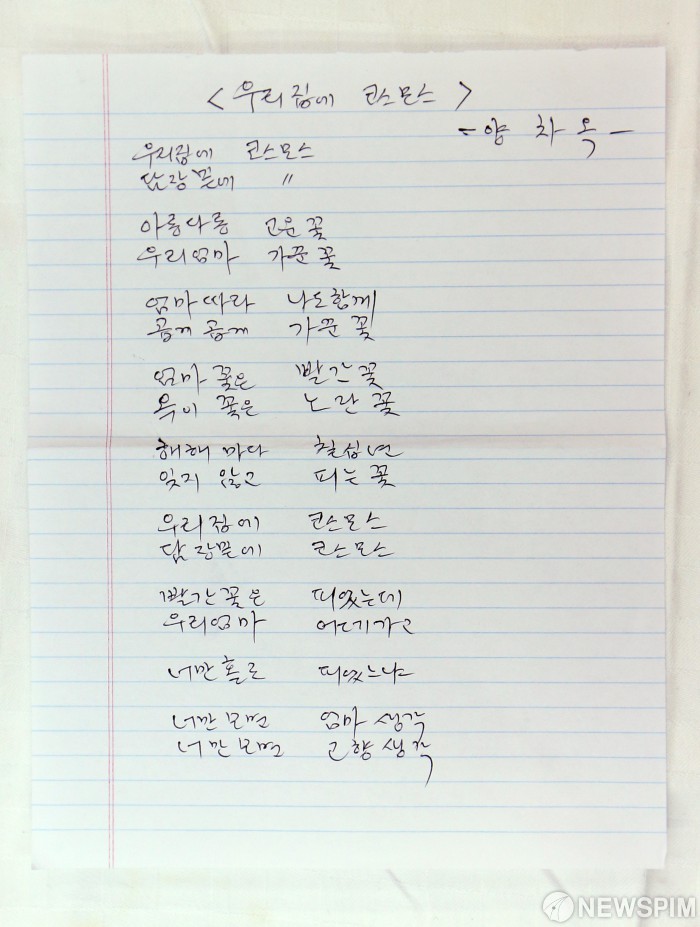 <우리집에 코스모스>
- 양 차 옥 -
우리집에 코스모스
담장 끝에 〃
아롱다롱 고운 꽃
우리엄마 가꾼 꽃
엄마따라 나도함께
곱게 곱게 가꾼 꽃
엄마 꽃은 빨간 꽃
옥이 꽃은 노란 꽃
해해 마다 칠십년
잊지 않고 피는 꽃
우리집에 코스모스
담장끝에 코스모스
빨간꽃은 피었는데
우리엄마 어데가고
너만 홀로 피었느냐
너만 보면 엄마 생각
너만 보면 고향 생각
NEWSPIM